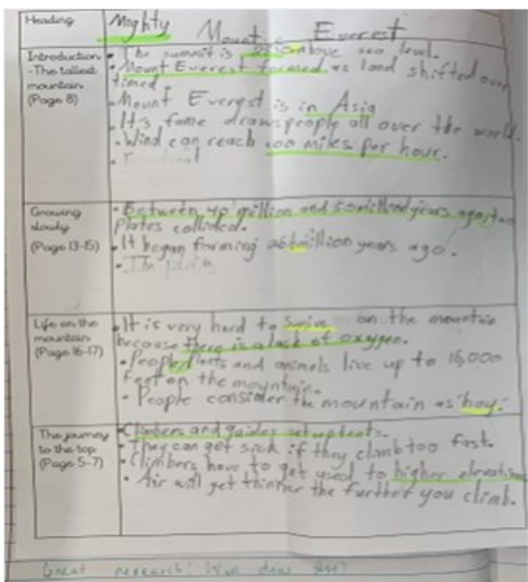 Heading
Mighty Mount Everest
Introduction
-The tallest
mountain
(Page 8)
The summit is above sea level.
Mount Everest formed as land shifted over
timed.
Mount Everest is in Asia
It's fame draws people all over the world.
Wind can reach 100 miles per hour.
Growing
slowly
(Page 13-15)
Between 40 million and 50 million years ago, two
plates collided.
It began forming million years ago.
Life on the
mountain
(Page 16-17)
It is very hard to on the mountain
because there is a lack of oxygen.
People, plants and animals live up to 16,000
feet on the mountain.
People consider the mountain as
The journey
to the top
(Page 5-7)
Climbers and guides set up tents.
They can get sick if they climb too fast.
Climbers have to get used to higher elevation
Air will get thinner the further you climb.
Great research!